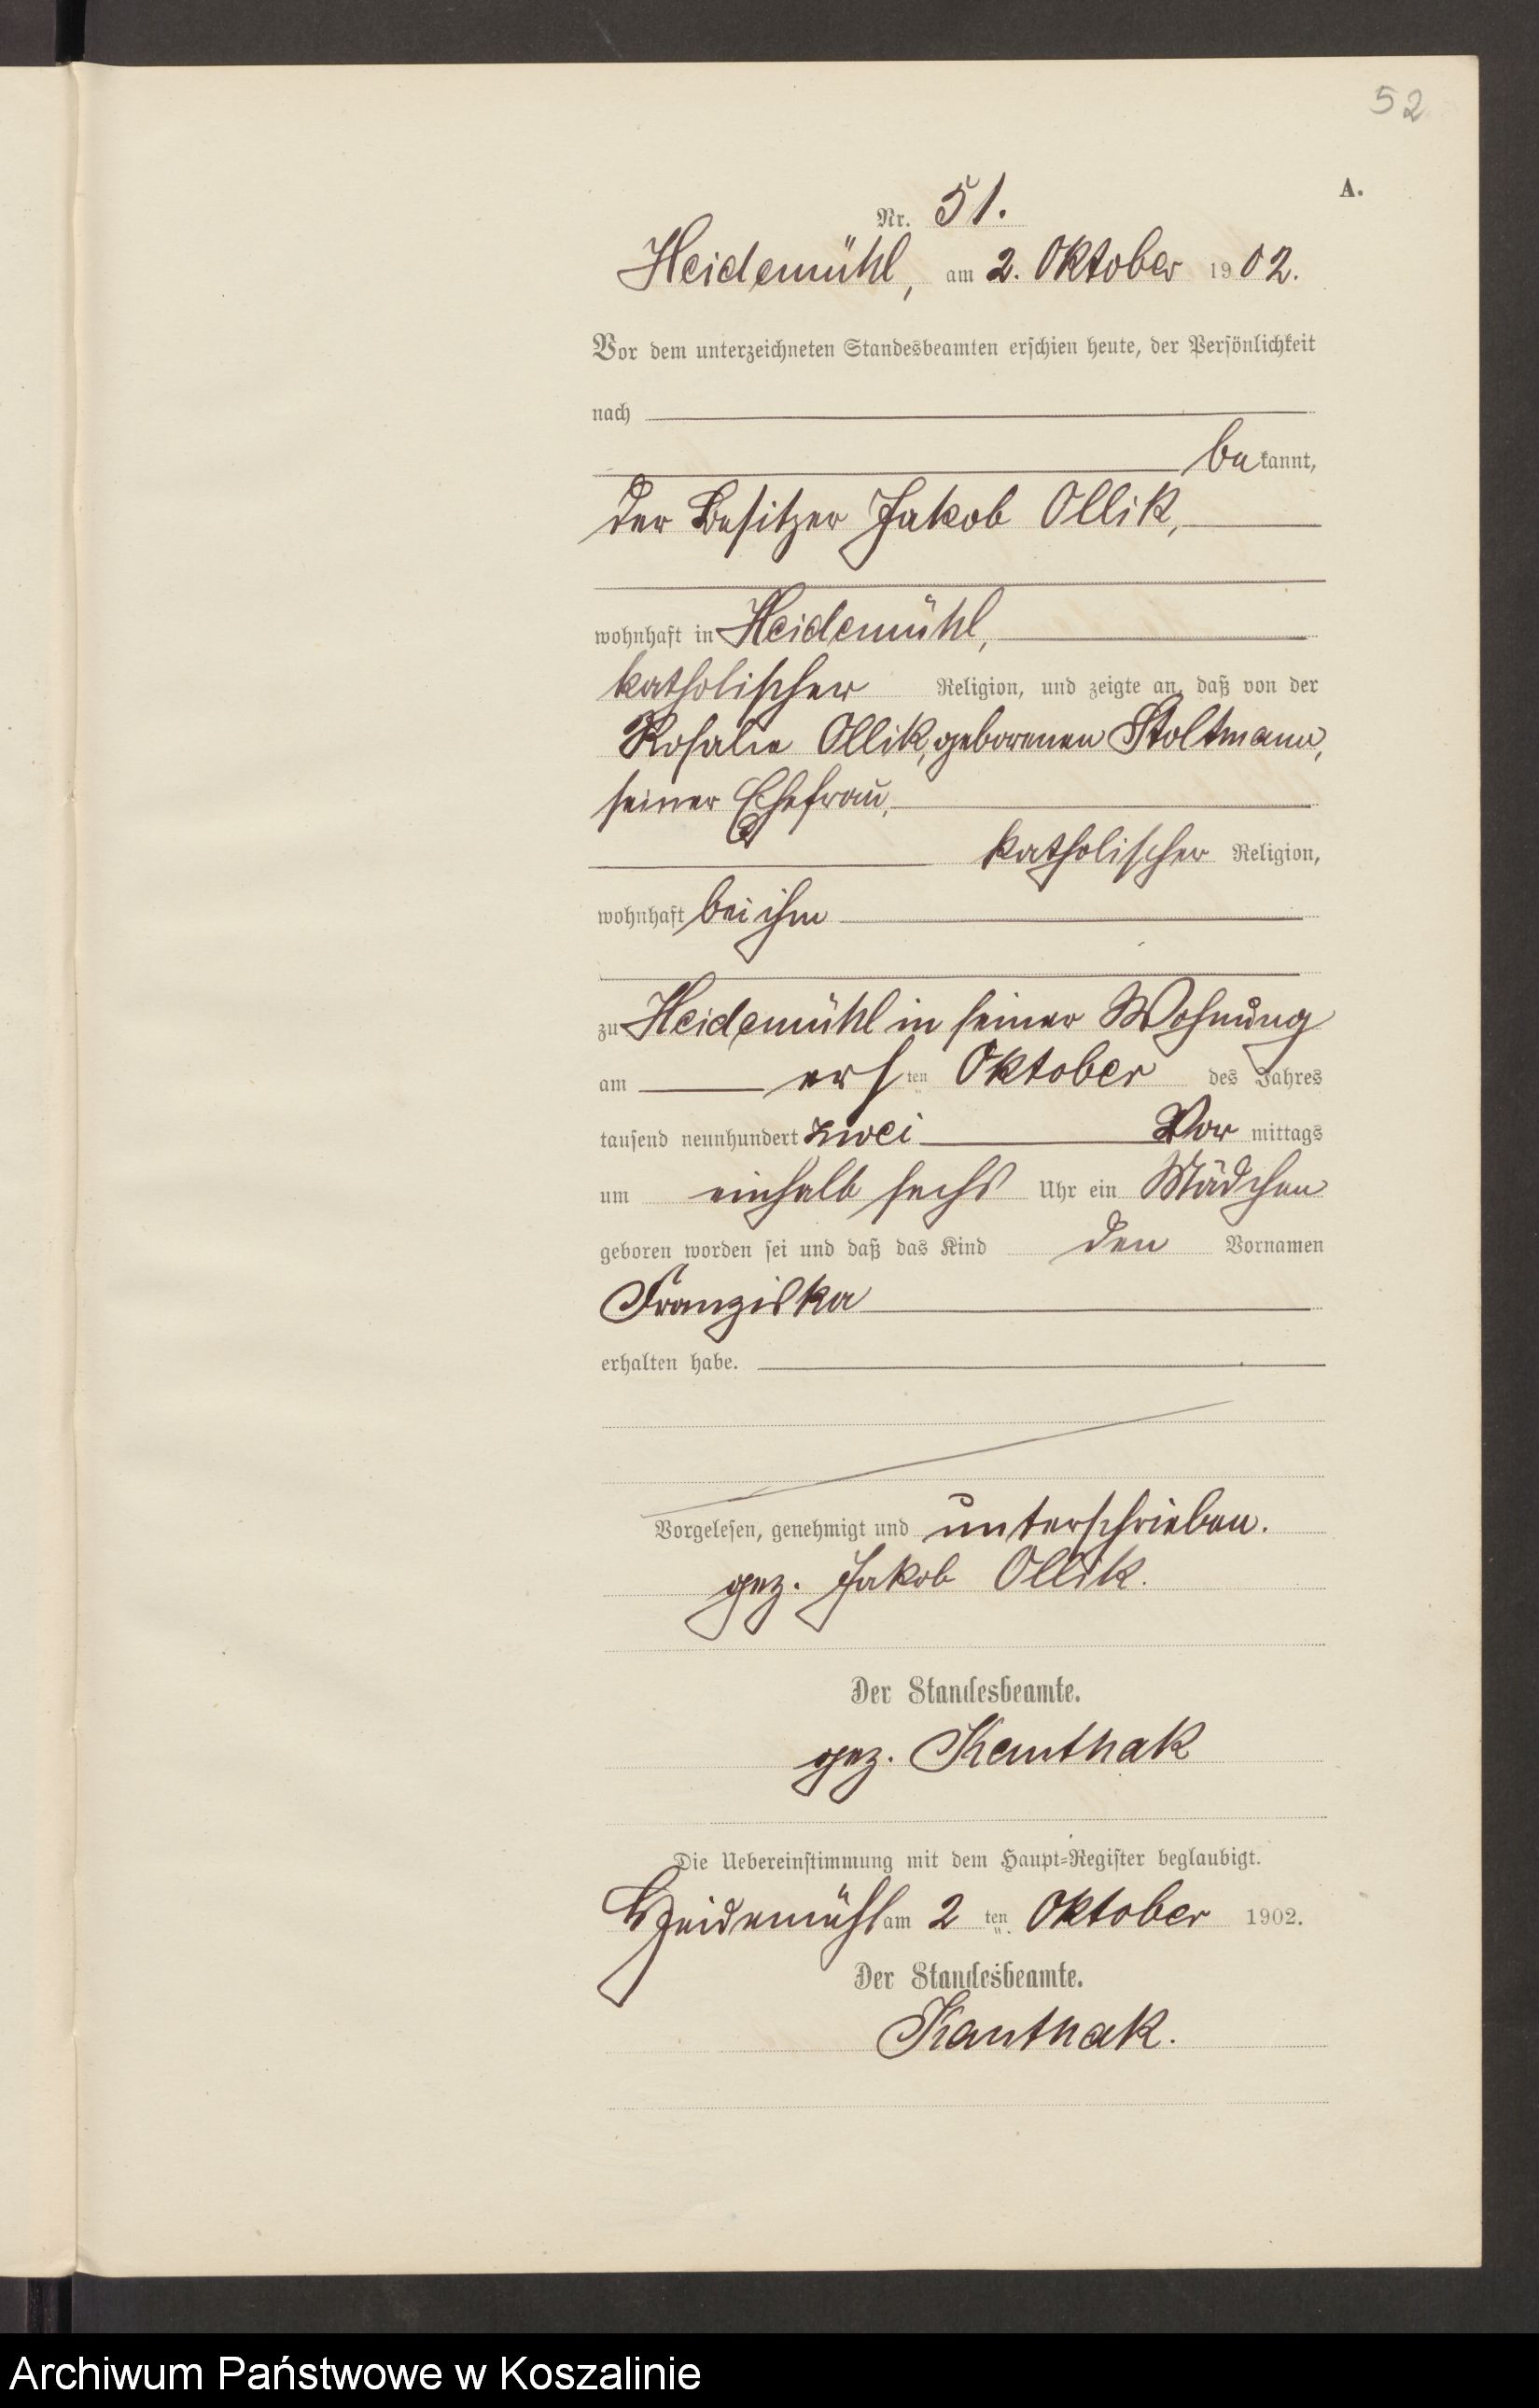 52
A.
Nr. 51.
Heidemühl, am 2. Oktober 1902.
Vor dem unterzeichneten Standesbeamten erschien heute, der Persönlichkeit
nach
bekannt,
der Besitzer Jakob Ollik,
wohnhaft in Heidemühl,
katholischer Religion, und zeigte an, daß von der
Rosalie Ollik, geborenen Stoltmann,
seiner Ehefrau,
katholischer Religion,
wohnhaft bei ihm
zu Heidemühl in seiner Wohnung
am ersten Oktober des Jahres
tausend neunhundert zwei Vor mittags
um einhalb sechs Uhr ein Mädchen
geboren worden sei und daß das Kind den Vornamen
Franziska
erhalten habe.
Vorgelesen, genehmigt und unterschrieben.
gez. Jakob Ollik.
Der Standesbeamte.
gez. Kanthak
Die Uebereinstimmung mit dem Haupt-Register beglaubigt.
Heidemühl am 2 ten Oktober 1902.
Der Standesbeamte.
Kanthak.
Archiwum Państwowe w Koszalinie